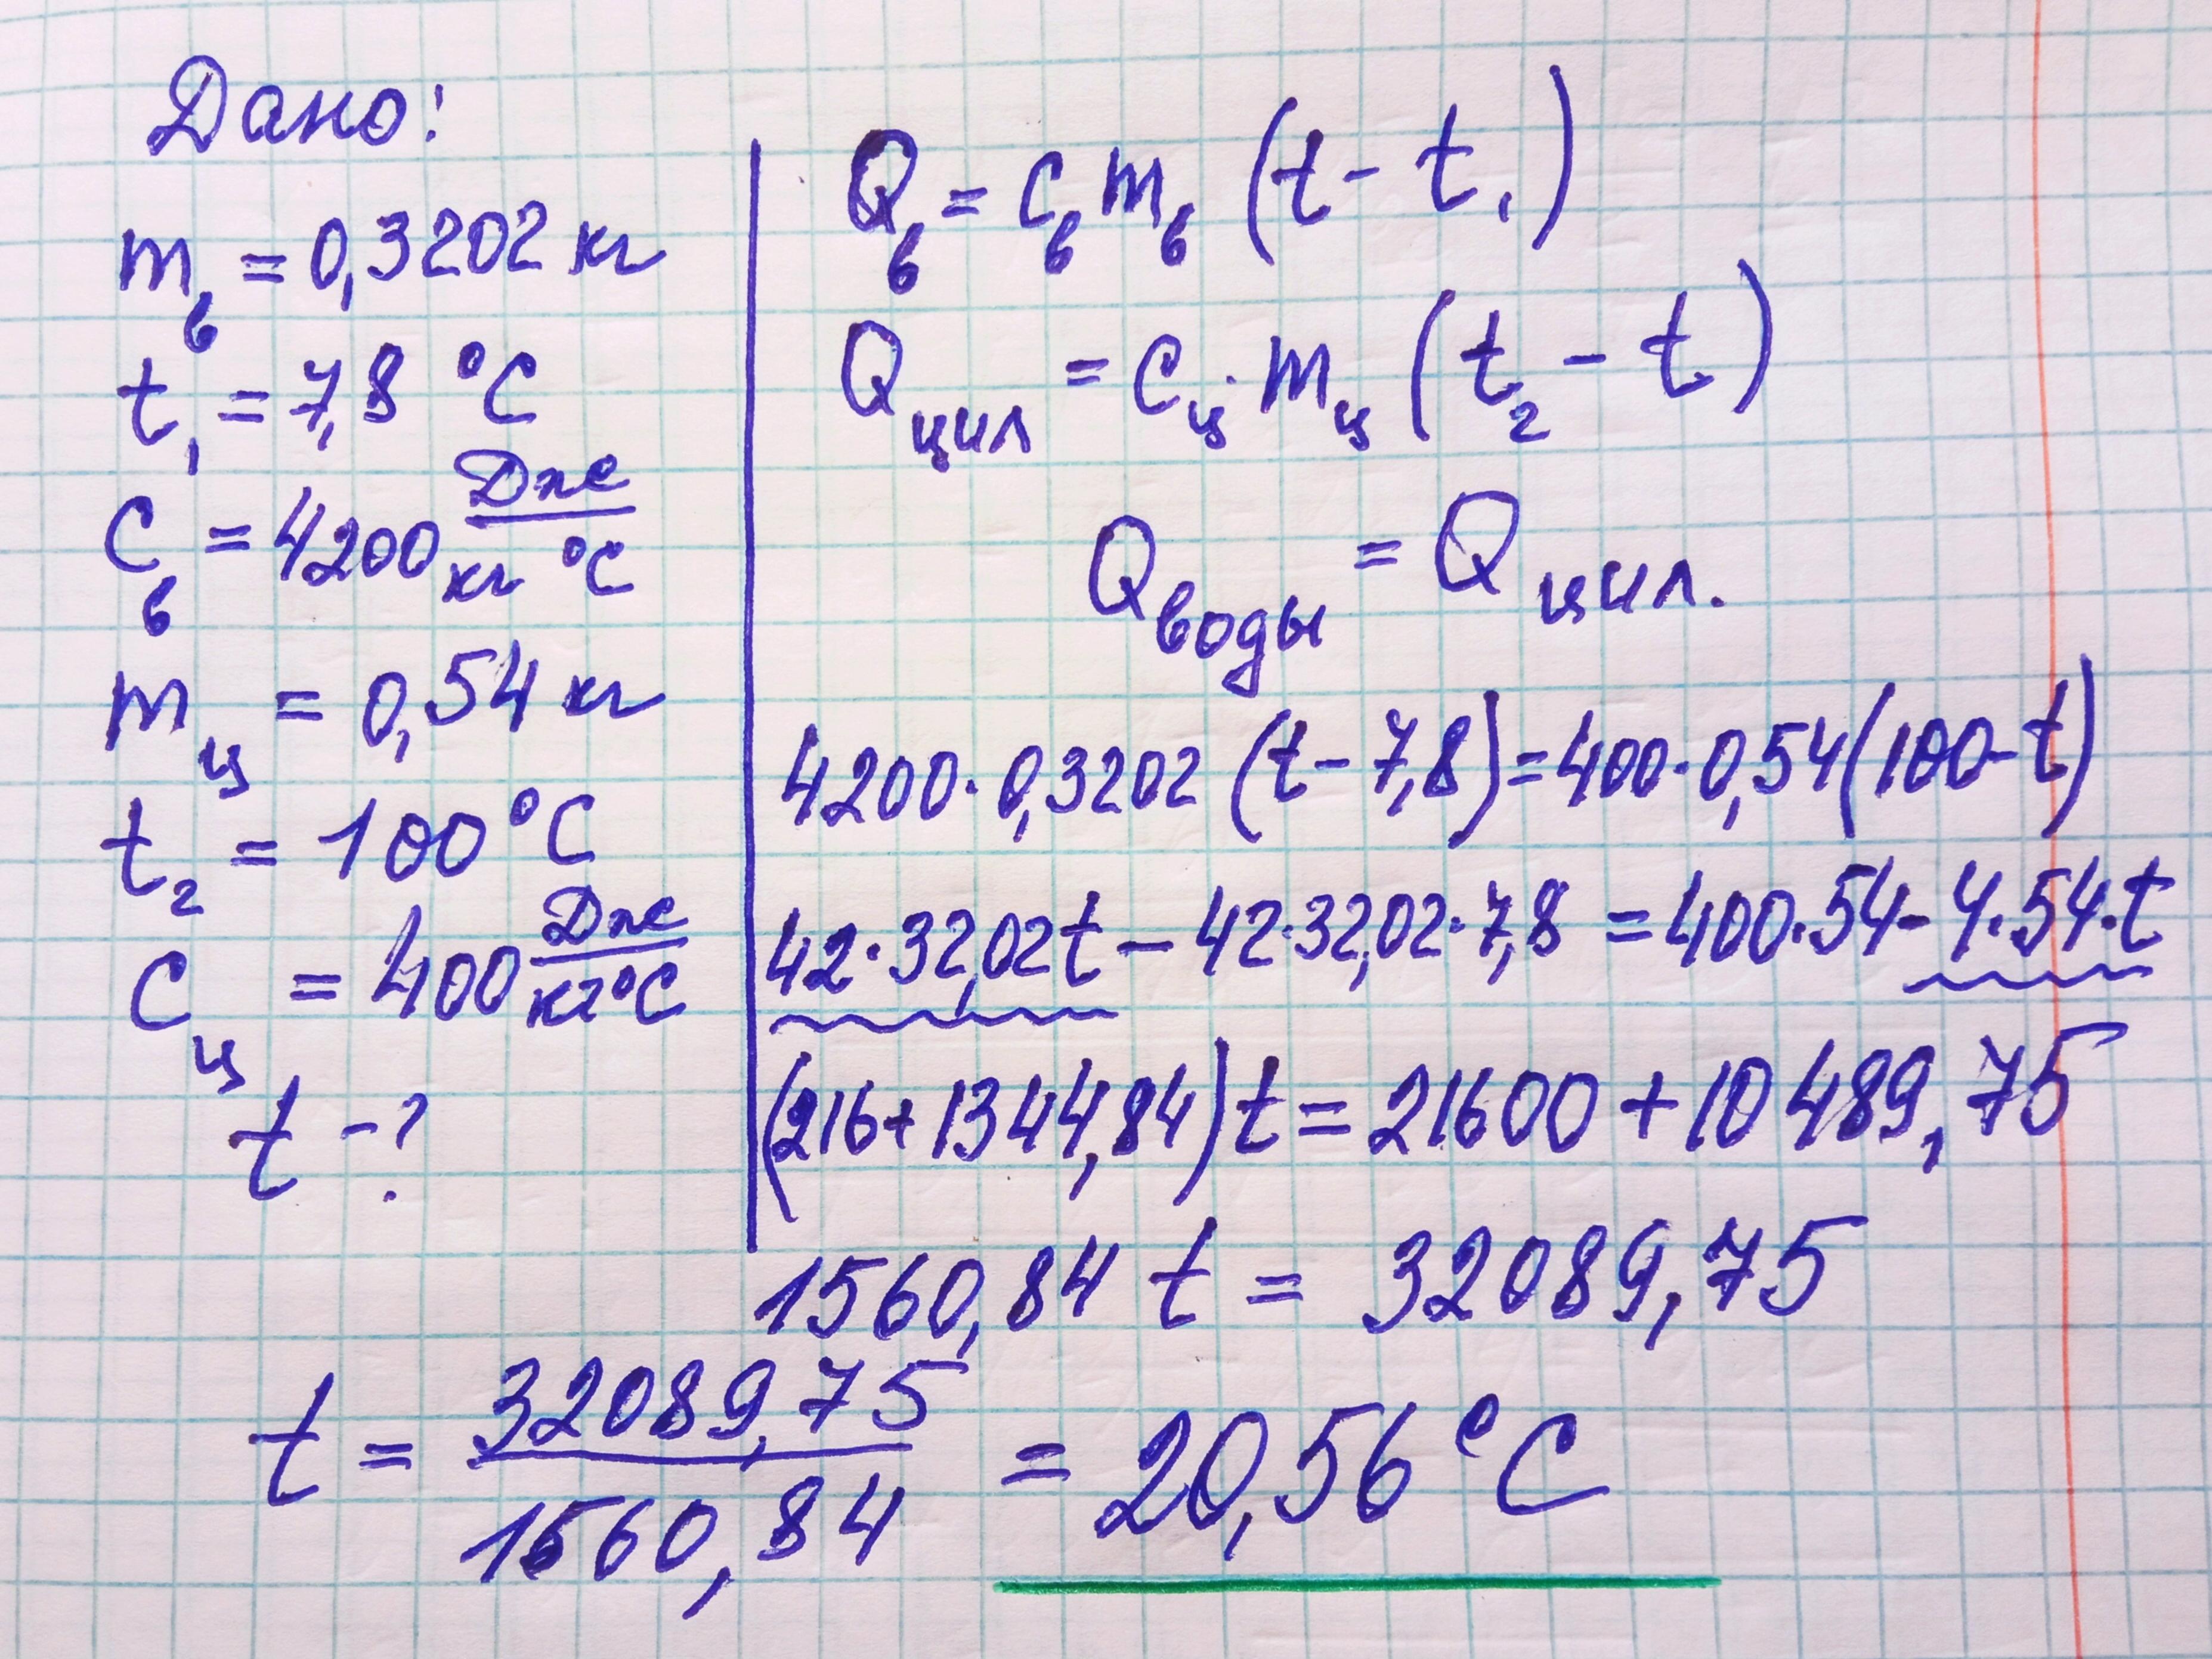 Дано:
m_в = 0,3202 кг
t₁ = 7,8 °C
C_в = 4200 Дж/кг °C
m_ц = 0,54 кг
t₂ = 100 °C
C_ц = 400 Дж/кг°C
t - ?
Q_в = C_в m_в (t - t₁)
Q_цил = C_ц · m_ц (t₂ - t)
Q_воды = Q_цил.
4200 · 0,3202 (t - 7,8) = 400 · 0,54 (100 - t)
42 · 32,02t - 42 · 32,02 · 7,8 = 400 · 54 - 4 · 54 · t
(216 + 1344,84) t = 21600 + 10489,75
1560,84 t = 32089,75
t = 32089,75/1560,84 = 20,56 °C